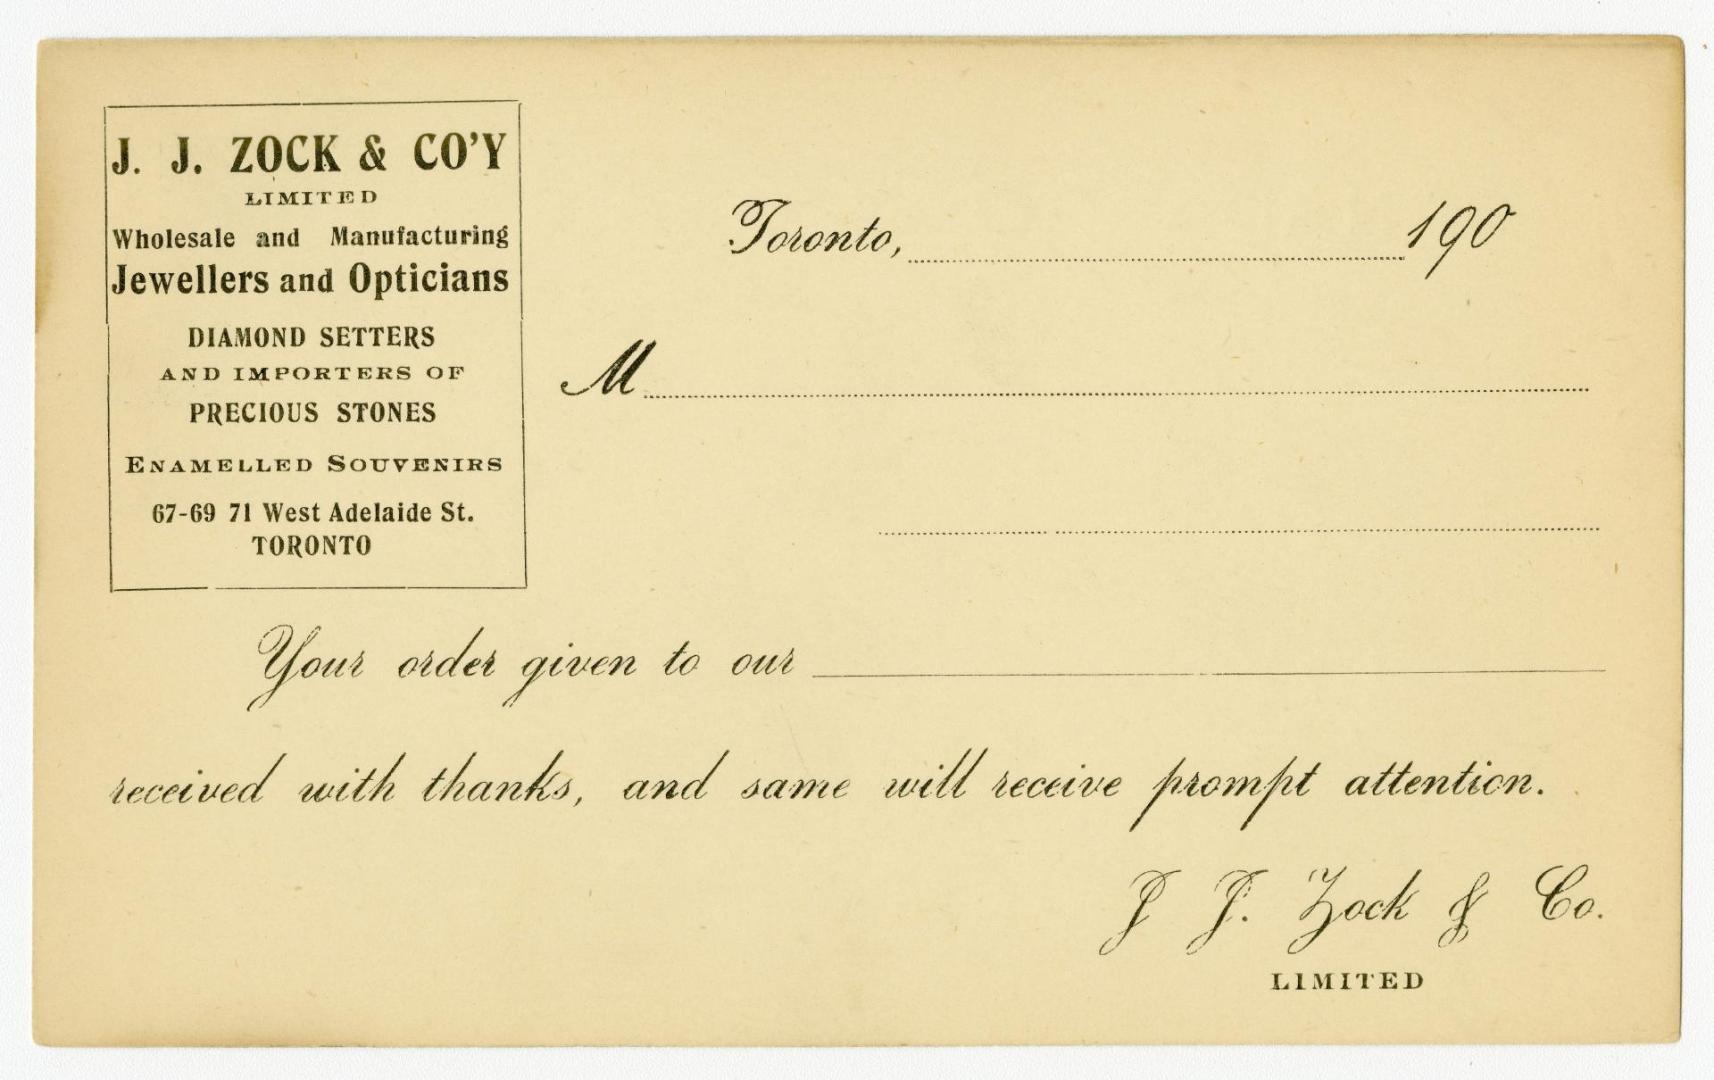 J. J. ZOCK & CO'Y
LIMITED
Wholesale and Manufacturing
Jewellers and Opticians
DIAMOND SETTERS
AND IMPORTERS OF
PRECIOUS STONES
ENAMELLED SOUVENIRS
67-69 71 West Adelaide St.
TORONTO
Toronto, 190
M
Your order given to our
received with thanks, and same will receive prompt attention.
J J. Zock & Co.
LIMITED